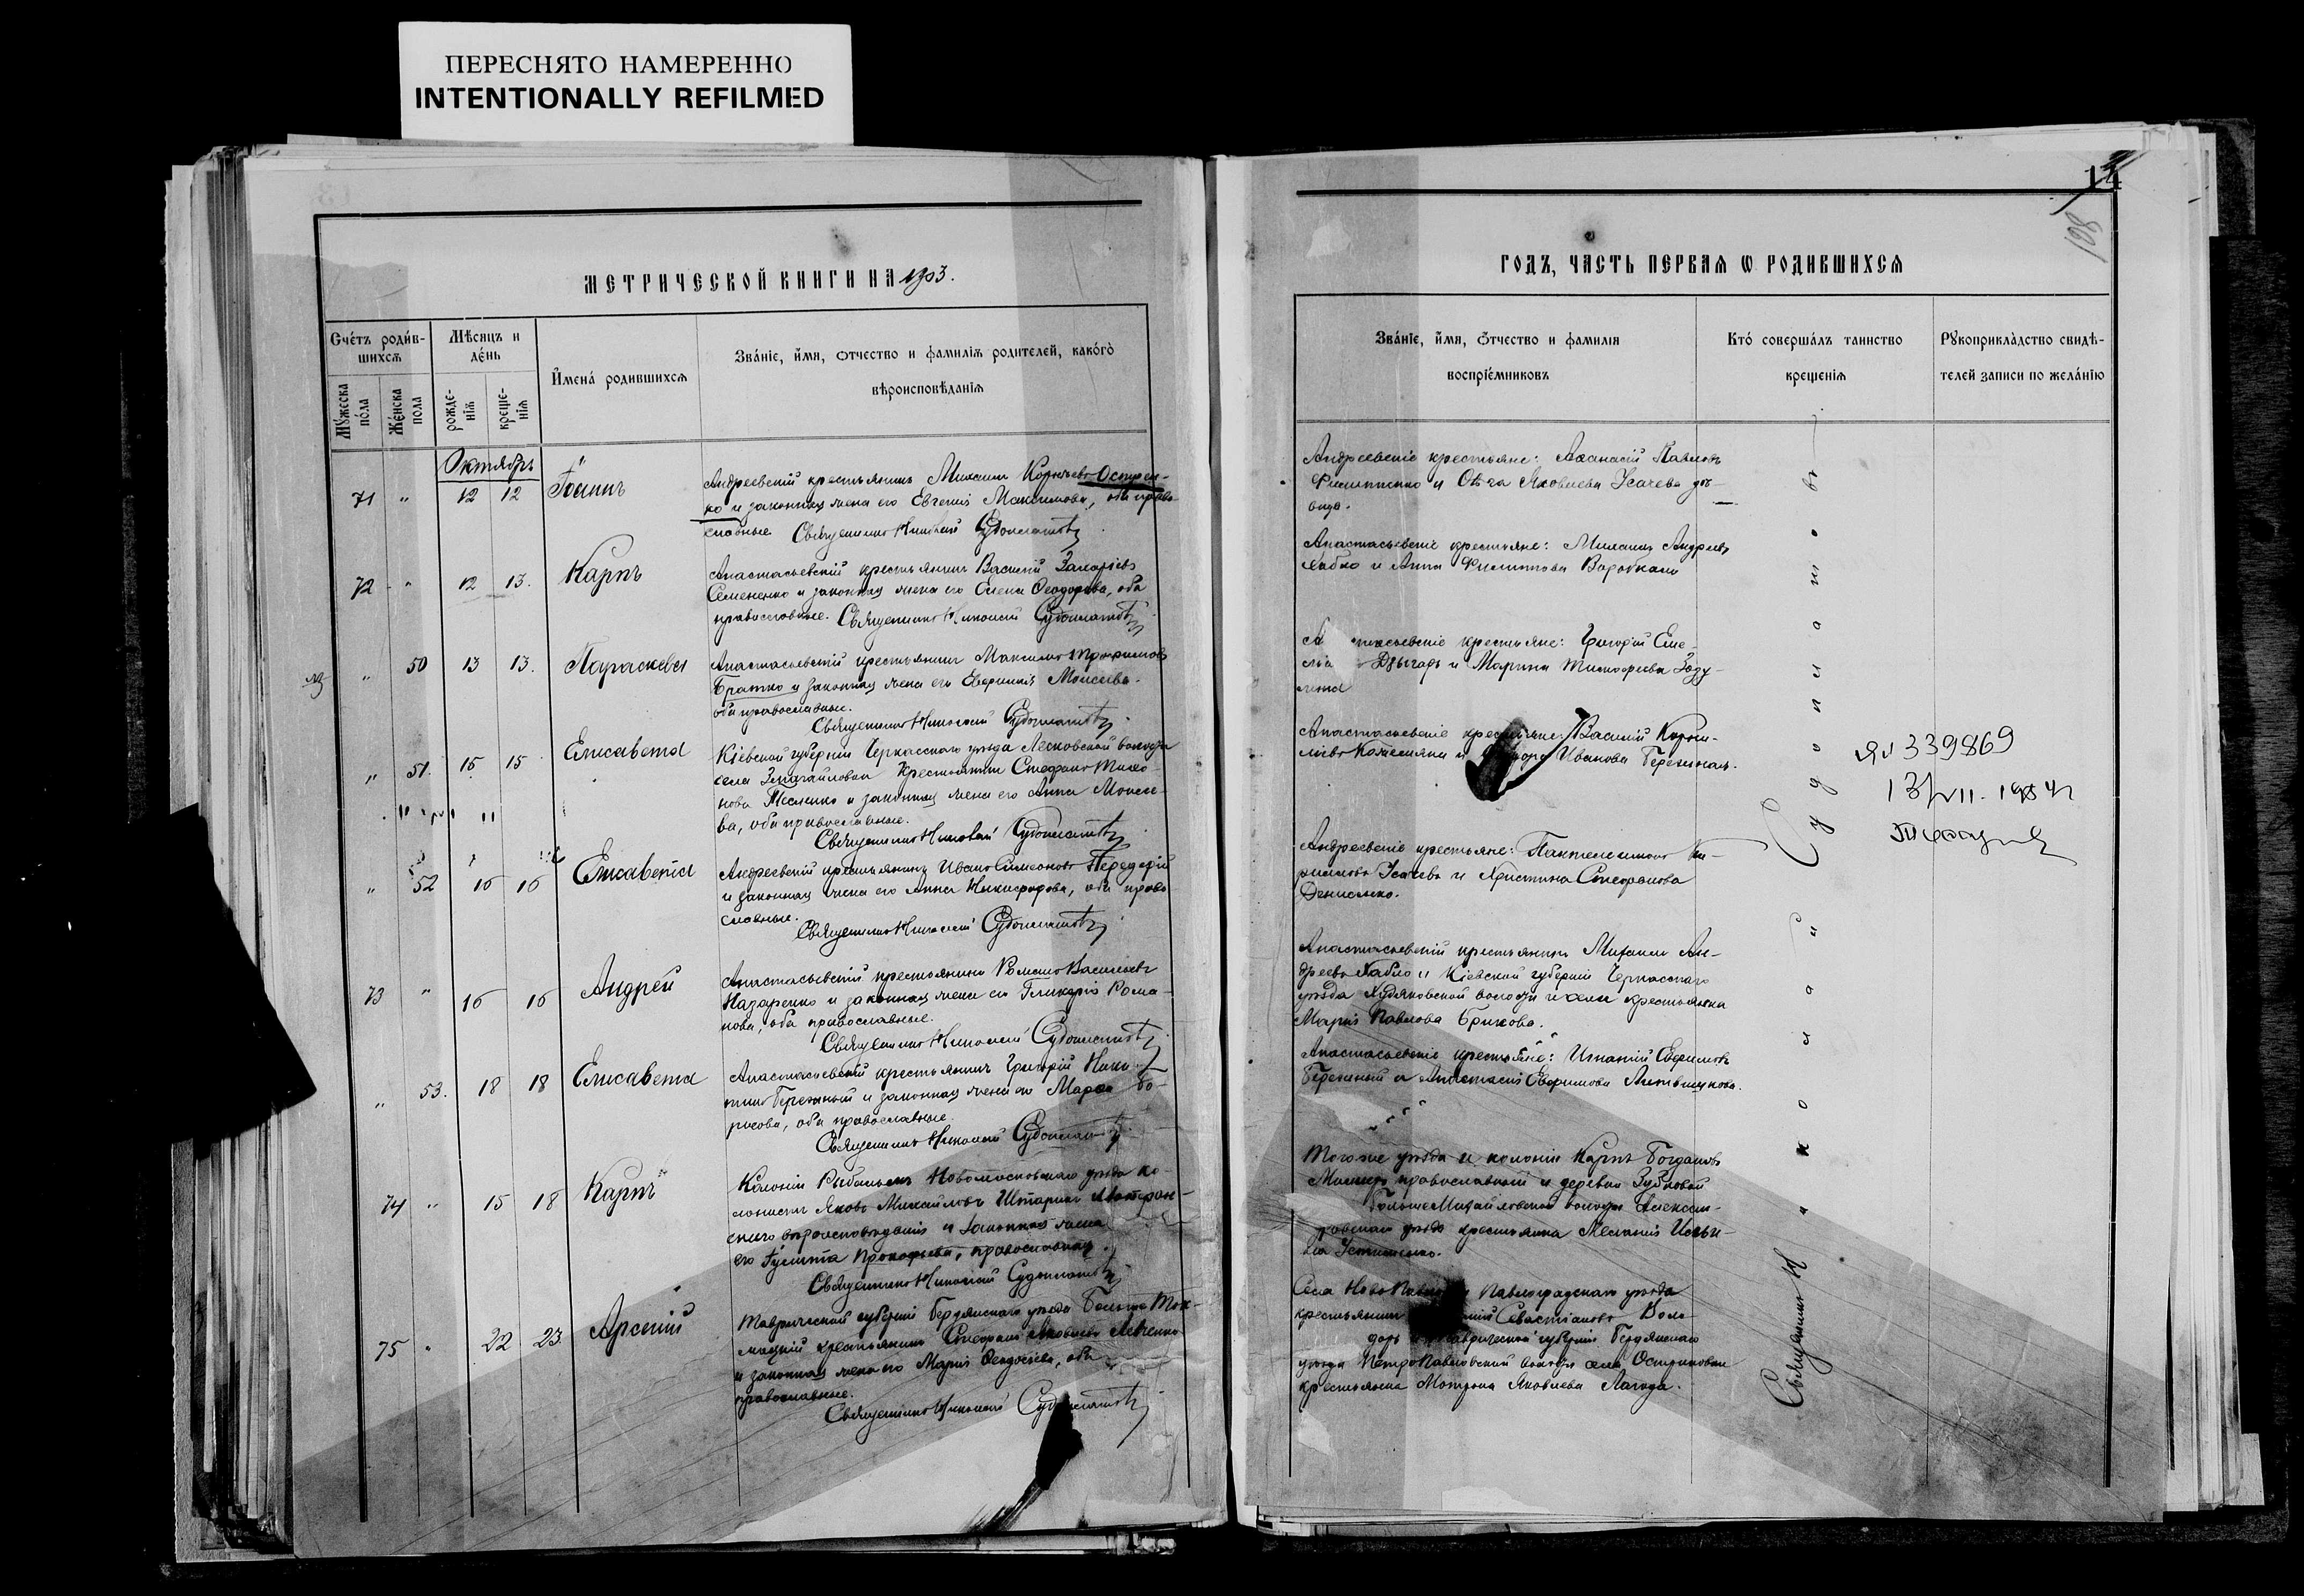 ПЕРЕСНЯТО НАМЕРЕННО
INTENTIONALLY REFILMED
14
МЕТРИЧЕСКОЙ КНИГИ НА 1903.
Счéтъ родив-
шихсѧ
Мѣсяцъ и
дéнь
Мꙋжеска пóла
Жéнска пола
рожде-
нїѧ
креще-
нїѧ
Имена́ родившихсѧ
Звáнїе, и́мя, ѻтчество и фамилїѧ родителей, какóгѡ
вѣроисповѣданїѧ
Октябрь
71 " 12 12 Іоаннъ
Андреевскій крестьянинъ Михаилъ Корнѣевъ Острен-
ко и законная жена его Евгенія Максимова, оба право-
славные Священникъ Николай Судоплатовъ
72 " 12 13. Карпъ
Анастасьевскій крестьянинъ Василій Захаріевъ
Семененко и законная жена его Елена Ѳеодорова, оба
православные. Священникъ Николай Судоплатовъ
" 50 13 13. Параскева
Анастасьевскій крестьянинъ Максимъ Трофимовъ
Братко и законная жена его Евфимія Моисеева.
оба православные.
Священникъ Николай Судоплатовъ
" 51. 15 15 Елисавета
Кіевской губерніи Черкасскаго уѣзда Лесковской волости
села крестьянинъ Стефанъ Тихо-
новъ и законная жена его Анна Моисее-
ва, оба православные.
Священникъ Николай Судоплатовъ
" 52 16 16 Елисавета
Андреевскій крестьянинъ Иванъ Симеоновъ Передерій
и законная жена его Анна Никифорова, оба право-
славные.
Священникъ Николай Судоплатовъ
73 " 16 16 Андрей
Анастасьевскій крестьянинъ Романъ Васильевъ
Назаренко и законная жена его Гликерія Рома-
нова, оба православные.
Священникъ Николай Судоплатовъ
" 53. 18 18 Елисавета
Анастасьевскій крестьянинъ Григорій Ники-
тинъ Бережный и законная жена его Марѳа Бо-
рисова, оба православные.
Священникъ Николай Судоплатовъ
74 " 15 18 Карпъ
Колоніи Новомосковскаго уѣзда ко-
лонистъ Яковъ Михайловъ Лютеран-
скаго вѣроисповѣданія и законная жена
его Іулитта Прокофьева, православная.
Священникъ Николай Судоплатовъ
75 " 22 23 Арсеній
Таврической губерніи Бердянскаго уѣзда Больше Ток-
мацкій крестьянинъ Стефанъ Яковлевъ Левченко
и законная жена его Марія Ѳеодосіева, оба
православные.
Священникъ Николай Судоплатовъ
ГОДЪ, ЧАСТЬ ПЕРВАѦ Ѡ РОДИВШИХСѦ
Звáнїе, и́мя, ѻтчество и фамилїя
воспрїéмниковъ
Ктó совершáлъ таинство
крещенїѧ
Рꙋкоприклáдство свидѣ-
телей записи по желáнїю
Андреевскіе крестьяне: Аѳанасій Павловъ
Филипенко и Ольга Яковлева Усачева дѣ-
вица.
Анастасьевскіе крестьяне: Михаилъ Андреевъ
Хабло и Анна Филиппова
А стасьевскіе крестьяне: Григорій Еме-
лья Дзыгарь и Марина Тимоѳеева
Анастасьевскіе крестьяне: Василій Корни-
ліевъ и Иванова Бережная.
Андреевскіе крестьяне: Пантелеимонъ Ки-
рилловъ Усачевъ и Христина Стефанова
Денисенко.
Анастасьевскій крестьянинъ Михаилъ Ан-
дреевъ Хабло и Кіевской губерніи Черкасскаго
уѣзда Худяковской волости и села крестьянка
Марія Павлова Брикова.
Анастасьевскіе крестьяне: Игнатій Евфимовъ
Бережный и Анастасія Евфимова Литвишкова.
Того же уѣзда и колоніи Карпъ Богдановъ
православный и деревни
БольшеМихайловской волости Алексан-
дровскаго уѣзда крестьянка Меланія Ильи-
на Устименко.
Села НовоПавло Павлоградскаго уѣзда
крестьянинъ Севастіановъ
и Таврической губерніи Бердянскаго
уѣзда ПетроПавловской волости села Остриковки
крестьянка Мотрона Яковлева Лагода.
Священникъ Николай Судоплатовъ
ЯѴ 339869
13/VII. 1954г